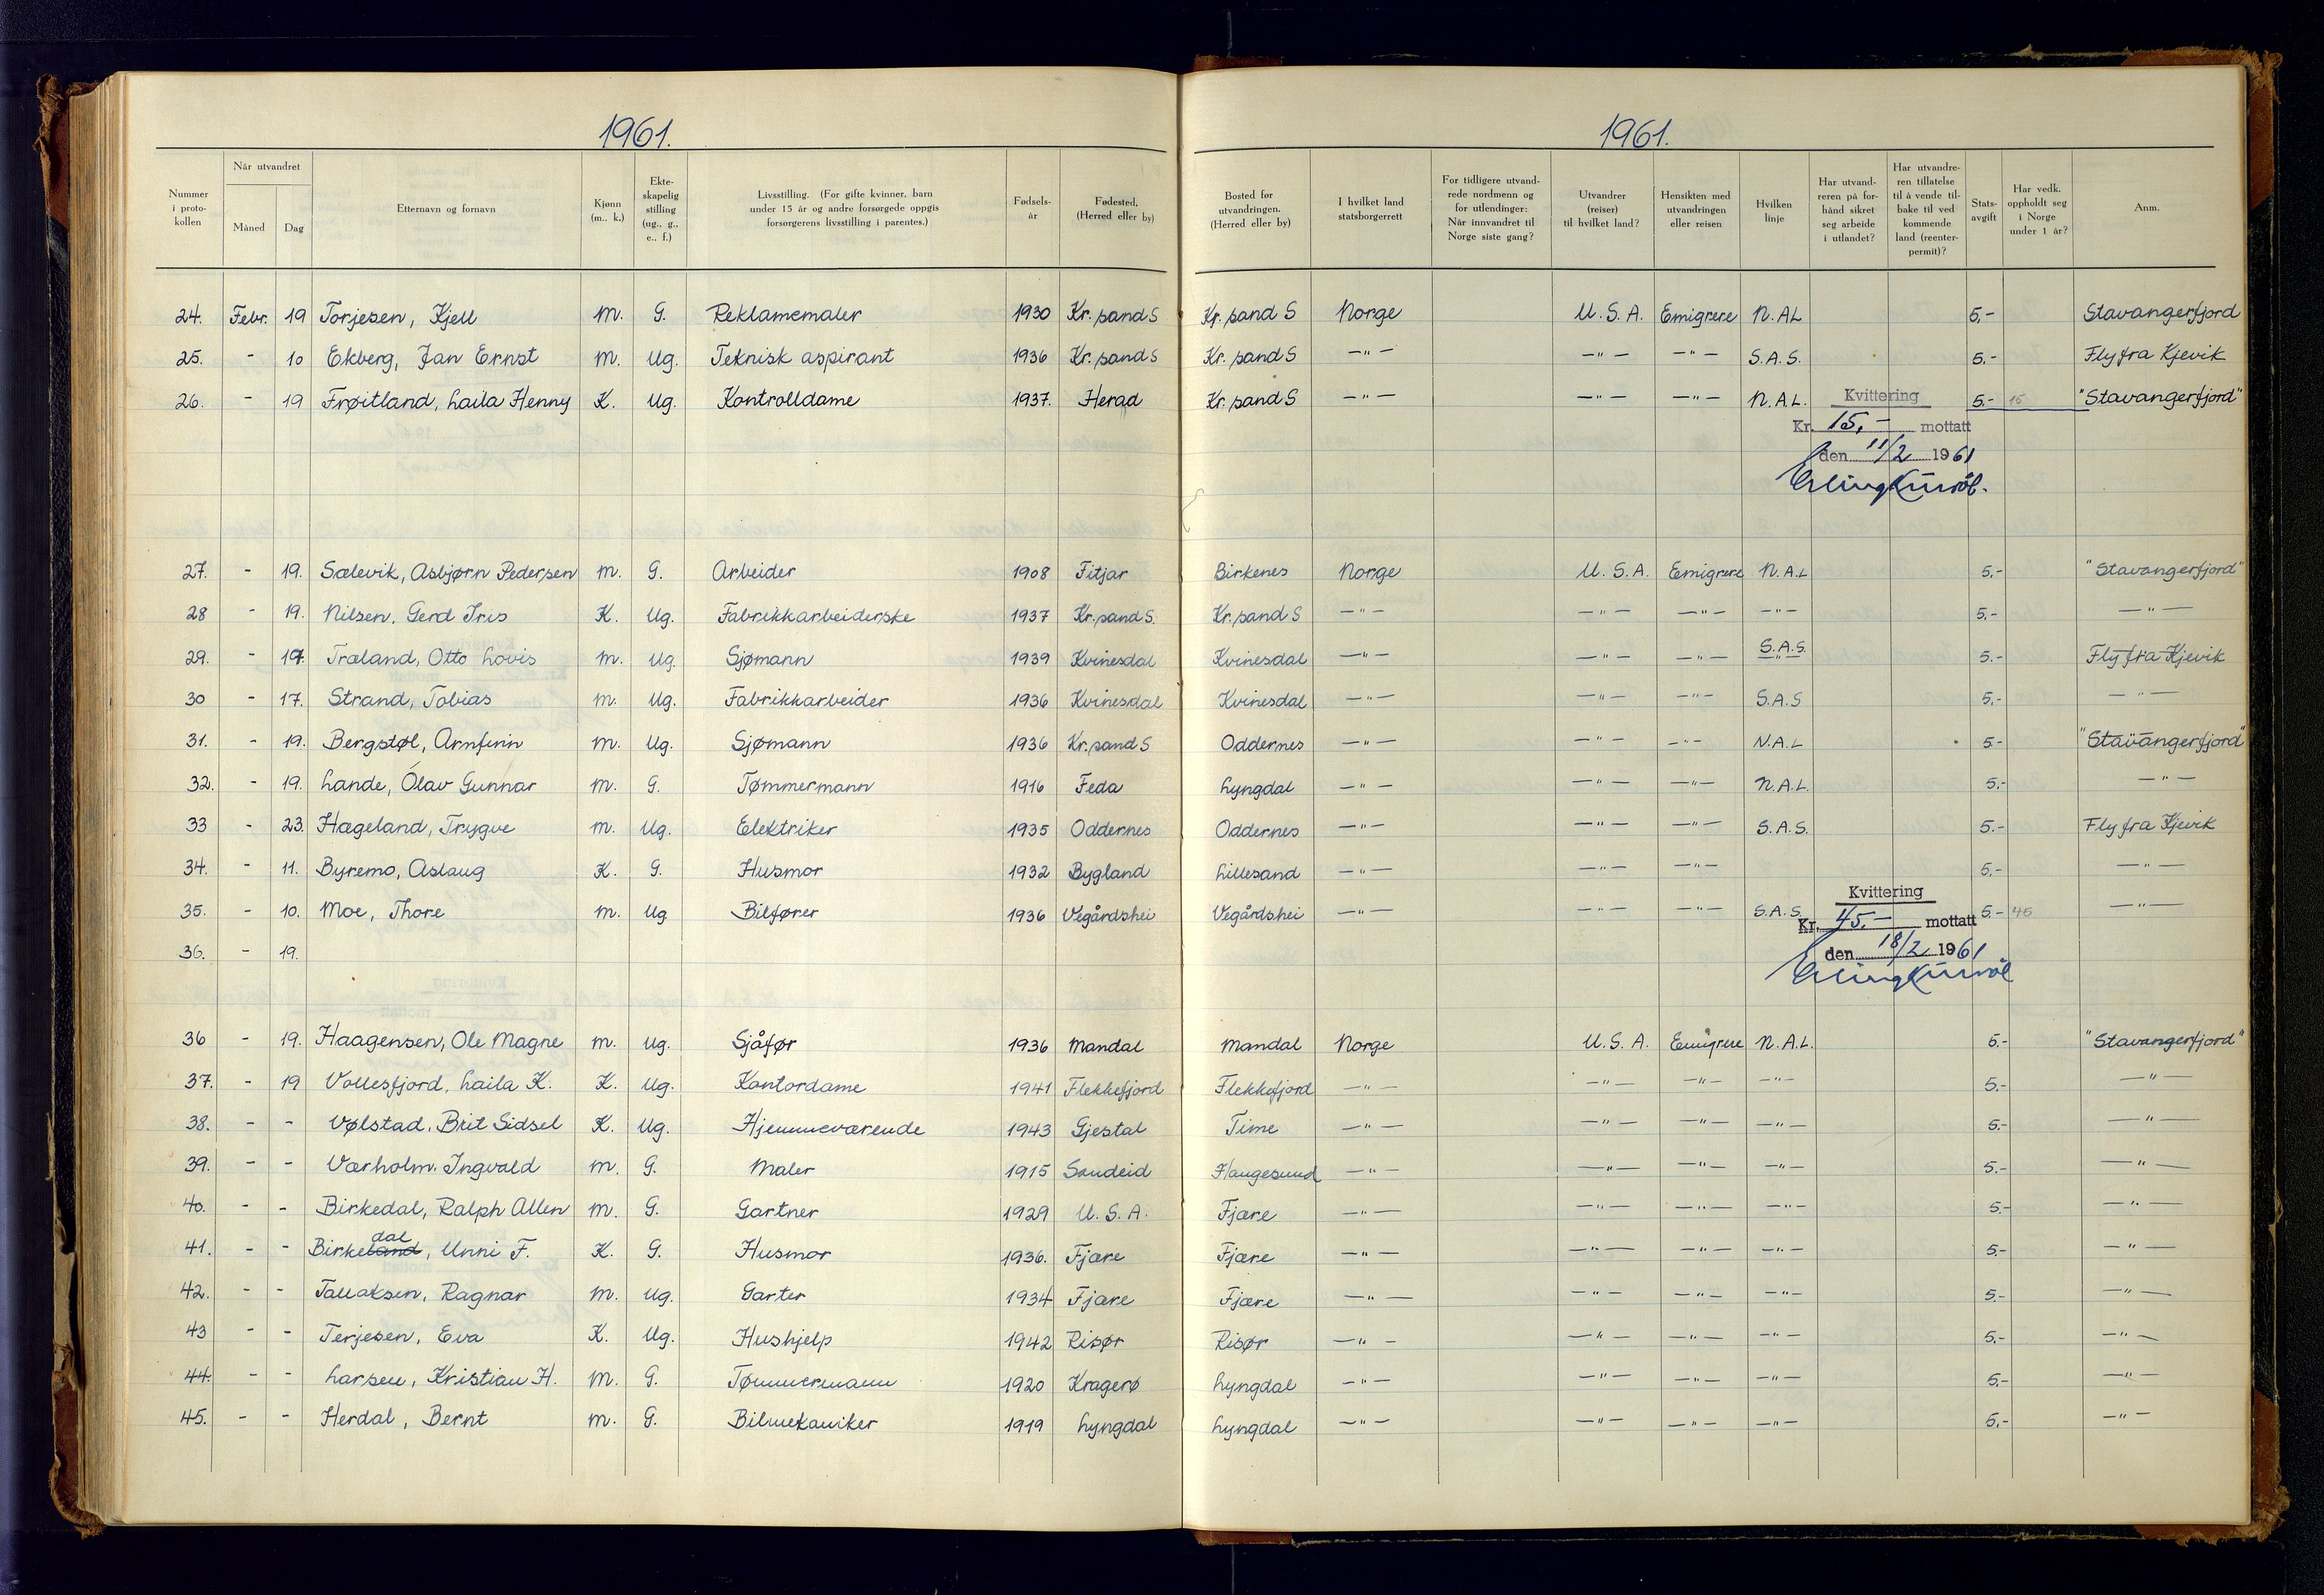 1961.
1961.
Nummer i proto- kollen
Når utvandret
Måned
Dag
Etternavn og fornavn
Kjønn (m., k.)
Ekte- skapelig stilling (ug., g., e., f.)
Livsstilling. (For gifte kvinner, barn under 15 år og andre forsørgede oppgis forsørgerens livsstilling i parentes.)
Fødsels- år
Fødested, (Herred eller by)
Bosted før utvandringen. (Herred eller by)
I hvilket land statsborgerrett
For tidligere utvand- rede nordmenn og for utlendinger: Når innvandret til Norge siste gang?
Utvandrer (reiser) til hvilket land?
Hensikten med utvandringen eller reisen
Hvilken linje
Har utvand- reren på for- hånd sikret seg arbeide i utlandet?
Har utvandre- ren tillatelse til å vende til- bake til ved kommende land (reenter- permit)?
Stats- avgift
Har vedk. oppholdt seg i Norge under 1 år?
Anm.
24. Febr. 19 Torjesen, Kjell m. G. Reklamemaler 1930 Kr.sand S Kr.sand S Norge U.S.A. Emigrere N.AL 5,- Stavangerfjord
25. - 10 Ekberg, Jan Ernst m. Ug. Teknisk aspirant 1936 Kr.sand S Kr.sand S -"- -"- -"- S.A.S. 5.- Fly fra Kjevik
26. - 19 Frøitland, Laila Henny K. Ug. Kontrolldame 1937. Herad Kr.sand S -"- -"- -"- N.A.L. 5.- 15 "Stavangerfjord"
Kvittering
Kr. 15,- mottatt
den 11/2 1961
27. - 19. Sælevik, Asbjørn Pedersen m. G. Arbeider 1908 Fitjar Birkenes Norge U.S.A. Emigrere N.A.L 5,- "Stavangerfjord"
28 - 19. Nilsen, Gerd Iris K. Ug. Fabrikkarbeiderske 1937 Kr.sand S. Kr.sand S -"- -"- -"- -"- 5,- -"-
29. - 17. Træland, Otto Lovis m. Ug. Sjømann 1939 Kvinesdal Kvinesdal -"- -"- -"- S.A.S. 5.- Fly fra Kjevik
30 - 17. Strand, Tobias m. Ug. Fabrikkarbeider 1936 Kvinesdal Kvinesdal -"- -"- -"- S.A.S 5,- -"-
31. - 19. Bergstøl, Arnfinn m. Ug. Sjømann 1936 Kr.sand S Oddernes -"- -"- -"- N.A.L 5.- "Stavangerfjord"
32. - 19. Lande, Olav Gunnar m. G. Tømmermann 1916 Feda Lyngdal -"- -"- -"- N.A.L. 5.- -"-
33 - 23. Hægeland, Trygve m. Ug. Elektriker 1935 Oddernes Oddernes -"- -"- -"- S.A.S. 5.- Fly fra Kjevik
34. - 11. Byremo, Aslaug K. G. Husmor 1932 Bygland Lillesand -"- -"- -"- 5,- -"-
35. - 10. Moe, Thore m. Ug Bilfører 1936 Vegårdshei Vegårdshei -"- -"- -"- S.A.S. 5.- 45 -"-
Kvittering
Kr. 45.- mottatt
36. - 19.
den 18/2 1961
36 - 19. Haagensen, Ole Magne m. Ug. Sjåfør 1936 Mandal Mandal Norge U.S.A. Emigrere N.A.L. 5.- "Stavangerfjord"
37. - 19 Vollesfjord, Laila K. K. Ug. Kontordame 1941 Flekkefjord Flekkefjord -"- -"- -"- -"- 5.- -"-
38. - - Vølstad, Brit Sidsel K. Ug. Hjemmeværende 1943 Gjestal Time -"- -"- -"- -"- 5.- -"-
39. - - Værholm. Ingvald m. G. Maler 1915 Sandeid Haugesund -"- -"- -"- -"- 5.- -"-
40. - - Birkedal, Ralph Allen m. G. Gartner 1929 U.S.A. Fjære -"- -"- -"- -"- 5.- -"-
41. - - Birkeland dal, Unni F. K. G. Husmor 1936. Fjære Fjære -"- -"- -"- -"- 5.- -"-
42. - - Tallaksen, Ragnar m. Ug. Garter 1934 Fjære Fjære -"- -"- -"- -"- 5.- -"-
43 - - Terjesen, Eva K. Ug. Hushjelp 1942 Risør Risør -"- -"- -"- -"- 5.- -"-
44. - - Larsen, Kristian H. m. G. Tømmermann 1920 Kragerø Lyngdal -"- -"- -"- -"- 5.- -"-
45. - - Herdal, Bernt m. G. Bilmekaniker 1919 Lyngdal Lyngdal -"- -"- -"- -"- 5.- -"-